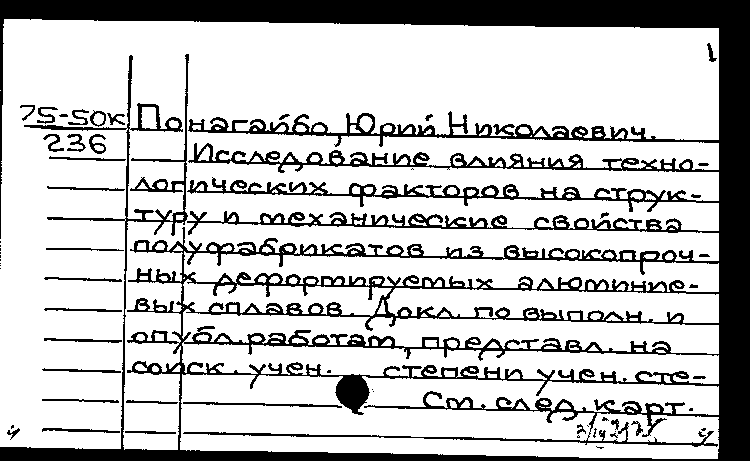 1
75-50к
236
Понагайбо, Юрий Николаевич.
Исследование влияния техно-
логических факторов на струк-
туру и механические свойства
полуфабрикатов из высокопроч-
ных деформируемых алюминие-
вых сплавов. Докл. по выполн. и
опубл. работам, представл. на
соиск. учен. степени учен. сте-
См. след. карт.